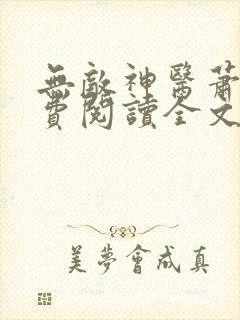 無敵神醫蕭
費閱讀全文
美夢會成真